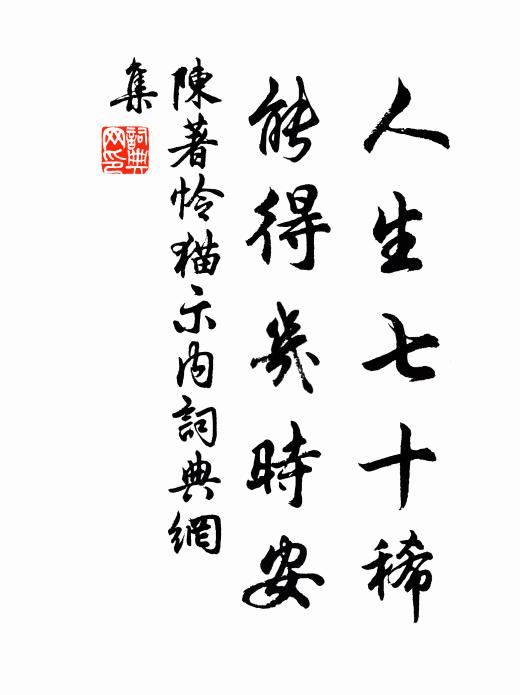 人生七十稀
能得幾時安
陳著怜猫示内詞典網
集
詞典網印